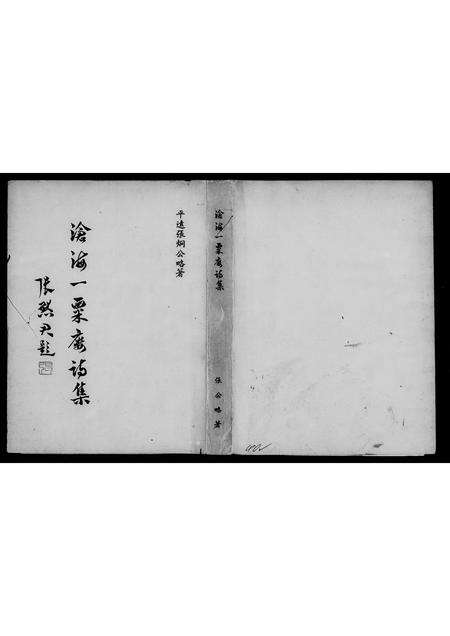 平遠張烱公略著
滄海一粟庵詩集
張默君題
滄海一粟庵詩集
張公略著